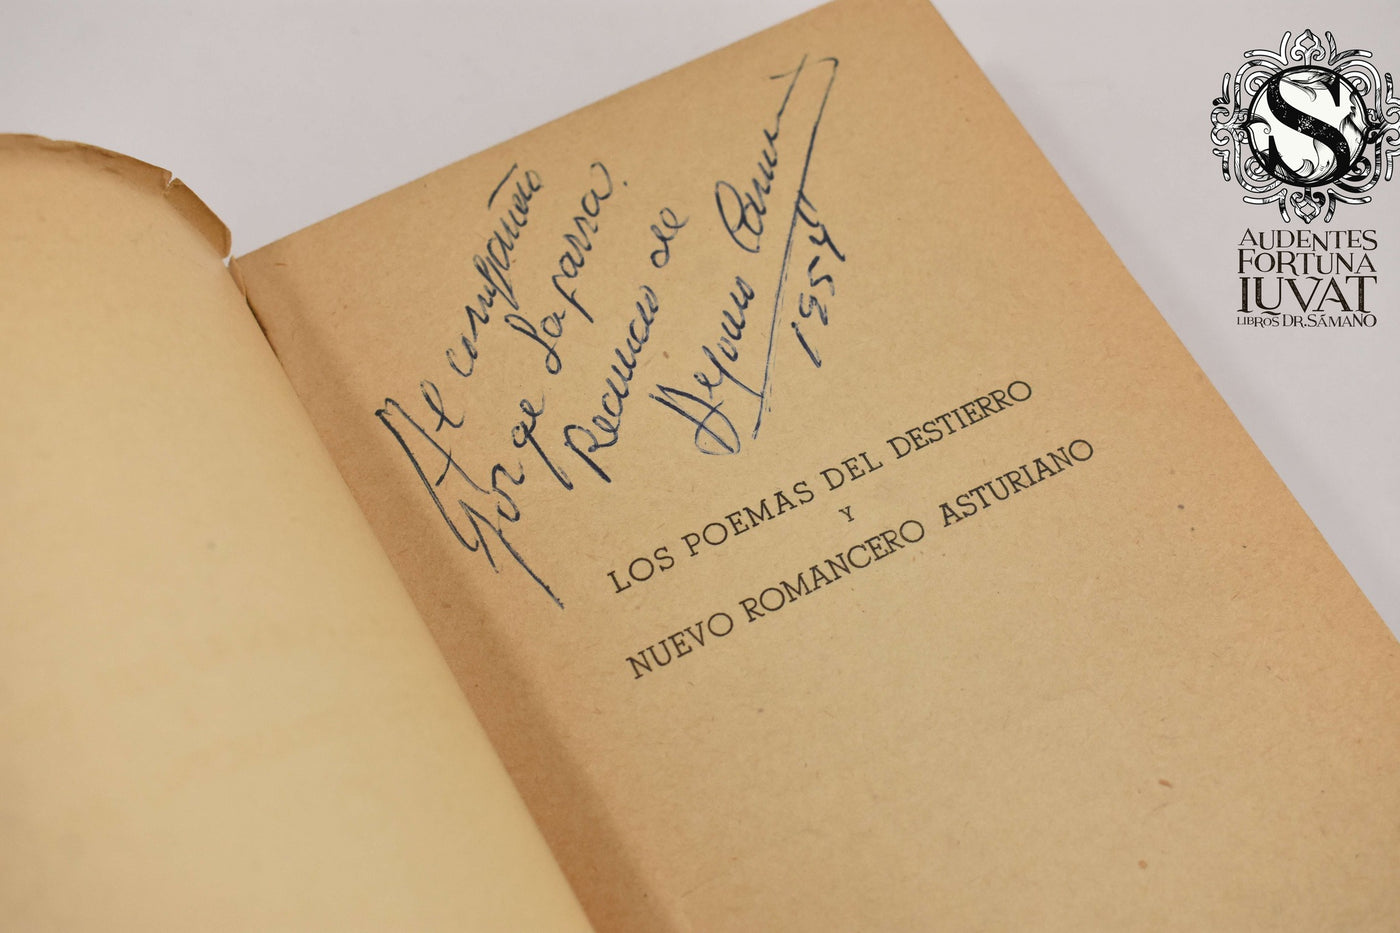 Al compañero
Jorge Lafarra.
Recuerdo de
Alfonso Camín
1954
LOS POEMAS DEL DESTIERRO
Y
NUEVO ROMANCERO ASTURIANO
S
AUDENTES
FORTUNA
IUVAT
LIBROS DR. SÁMANO